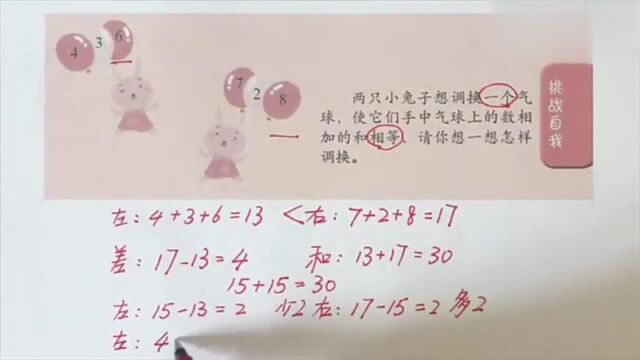 4 3 6
7 2 8
两只小兔子想调换一个气
球，使它们手中气球上的数相
加的和相等，请你想一想怎样
调换。
挑战自我
左：4+3+6=13 <右：7+2+8=17
差：17-13=4 和：13+17=30
15+15=30
左：15-13=2 少2 右：17-15=2 多2
左：4